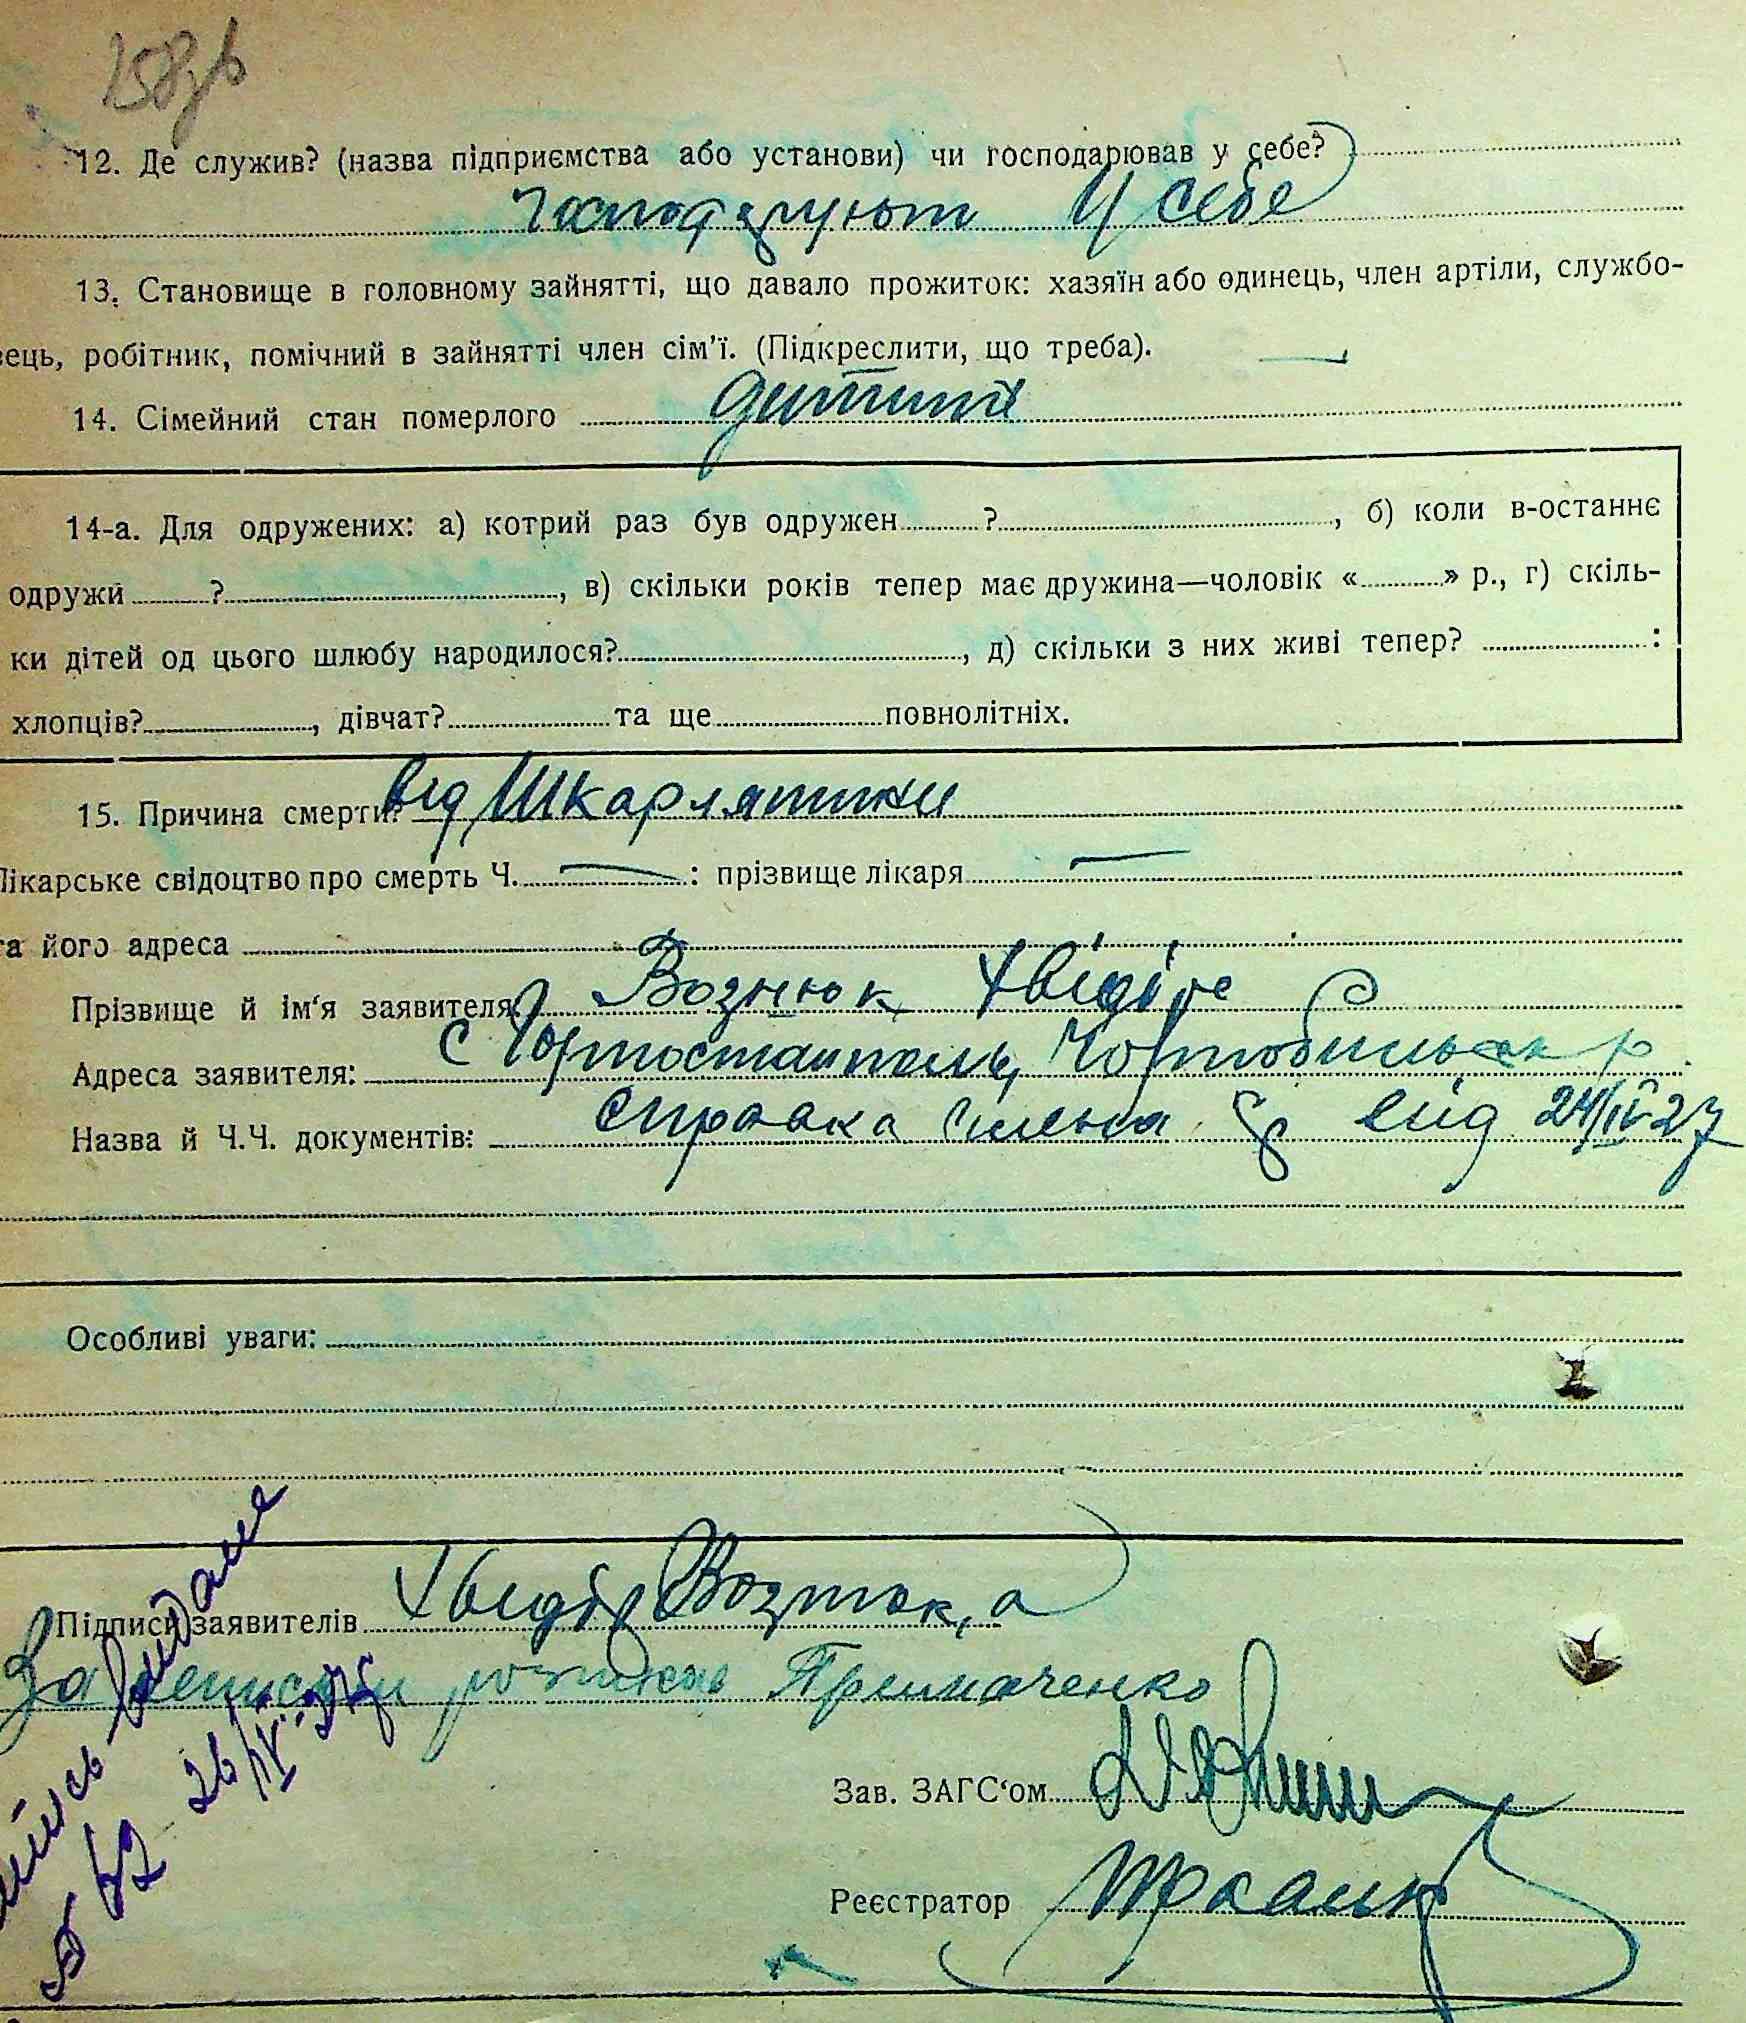 258зв
12. Де служив? (назва підприємства або установи) чи господарював у себе?
господарюют у себе
13. Становище в головному зайнятті, що давало прожиток: хазяїн або одинець, член артіли, службо-
вець, робітник, помічний в зайнятті член сім’ї. (Підкреслити, що треба). —
14. Сімейний стан померлого дитина
14-а. Для одружених: а) котрий раз був одружен ? , б) коли в-останнє
одружи ? , в) скільки років тепер має дружина—чоловік « » р., г) скіль-
ки дітей од цього шлюбу народилося? , д) скільки з них живі тепер? :
хлопців? , дівчат? та ще повнолітніх.
15. Причина смерти? від Шкарлятини
Лікарське свідоцтво про смерть Ч. — : прізвище лікаря —
та його адреса
Прізвище й ім‘я заявителя: Вознюк Хвідір
Адреса заявителя: с Горностайполь, Чорнобильськ р.
Назва й Ч.Ч. документів: справка від 24/IV-27
Особливі уваги:
Підписи заявителів Хвідір Вознюк, а
За розписався Примаченко
Зав. ЗАГС‘ом
Реєстратор
видано
26/IV-27